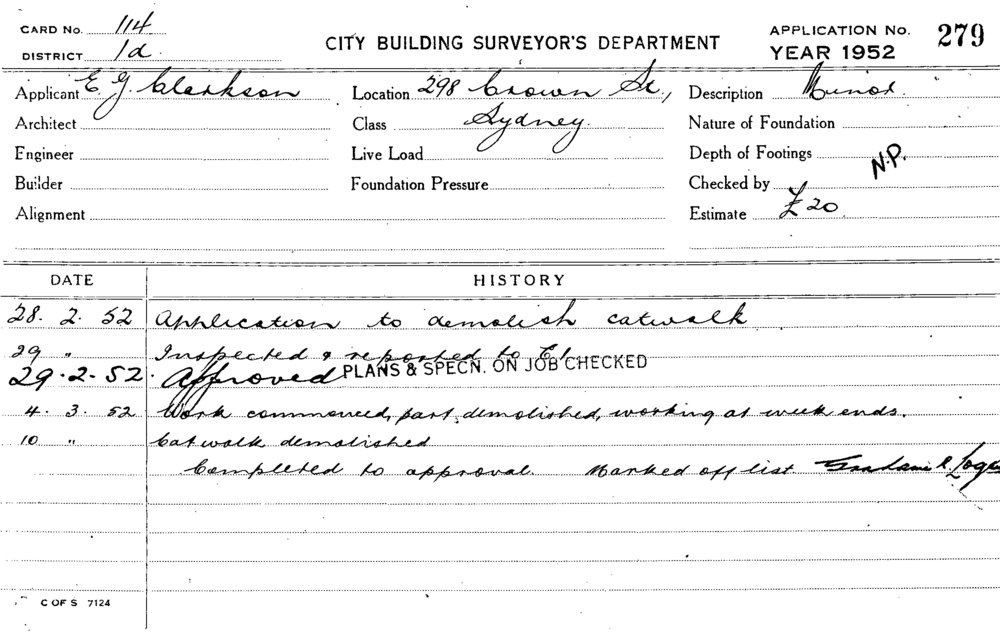 CARD No. 114
DISTRICT 1d.
CITY BUILDING SURVEYOR'S DEPARTMENT
APPLICATION No. 279
YEAR 1952
Applicant E. G. Clarkson
Location 298 Crown St.,
Description Minor.
Architect
Class Sydney.
Nature of Foundation
Engineer
Live Load
Depth of Footings
N.P.
Builder
Foundation Pressure
Checked by
Alignment
Estimate £20
DATE HISTORY
28. 2. 52 Application to demolish catwalk
29 " Inspected & reported to
29.2.52. Approved PLANS & SPECN. ON JOB CHECKED
4. 3. 52 Work commenced, part demolished, working at week ends.
10 " Catwalk demolished
Completed to approval. Marked off list
C OF S 7124